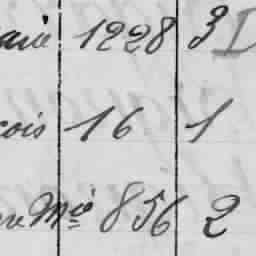 aire 1228 3 D
çois 16 1
re Mie 856 2